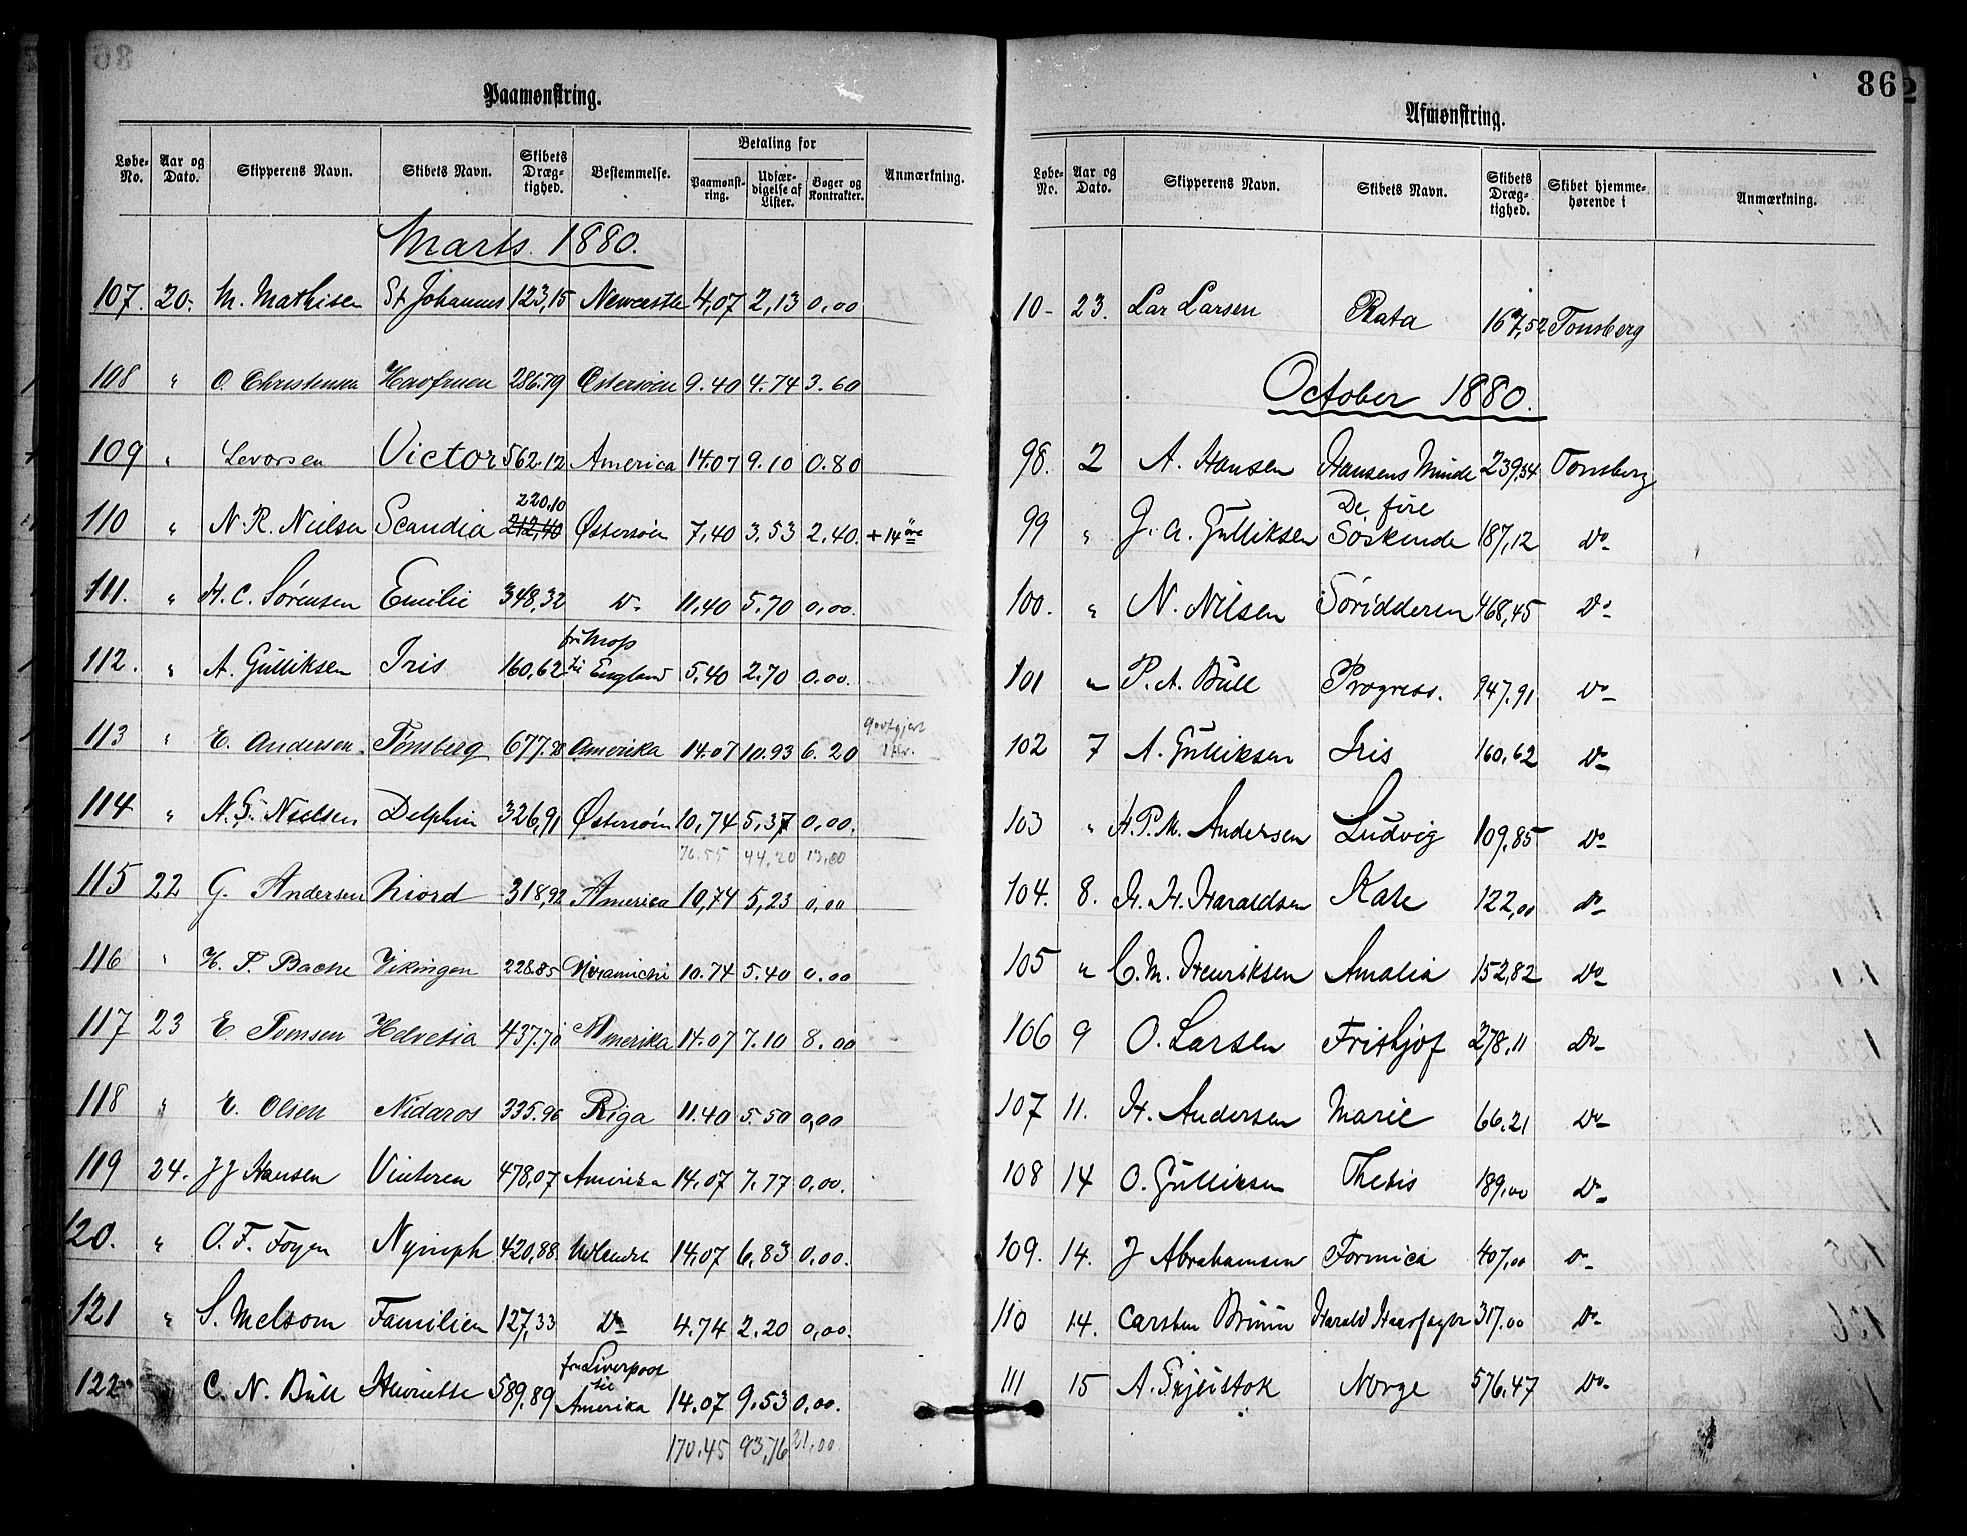 Paamønstring.
Løbe-No. Aar og Dato. Skipperens Navn. Skibets Navn. Skibets Dræg-tighed. Bestemmelse. Betaling for Paamønst-ring. Udfær-digelse af Lister. Bøger og Kontrakter. Anmærkning.
Marts. 1880.
107. 20. M. Mathisen St Johannes 123,15 Newcastle 4,07 2,13 0,00
108 " O. Christensen Havfruen 286.79 Østersøen 9.40 4.74 3.60
109 " Levorsen Victor 562.12 America 14.07 9.10 0.80
220,10
110 " N. R. Nielsen Scandia 212,40 Østersøen 7,40 3,53 2,40. + 14 øre
111. " H. C. Sørensen Emilie 348,32 Do 11,40 5,70 0,00.
112. " A. Gulliksen Iris 160,62 fra Moss til England 5,40 2,70 0.00.
113 " E. Andersen. Tønsberg 677.28 Amerika 14.07 10.93 6.20
114 " A. G. Nielsen Delphin 326,91 Østersøen 10,74 5,37 0,00.
76.55 44,20 13,00
115 22 G. Andersen Niord 318,92 America 10,74 5,23 0,00
116 " H. P. Bache Vikingen 228.85 Miramichi 10.74 5.40 0.00
117 23 E. Tomsen Helvetia 437.70 Amerika 14.07 7.10 8.00
118 " E. Olsen Nidaros 335.96 Riga 11.40 5.50 0,00
119 24. J J Hansen Vinteren 478,07 Amerika 14,07 7,77 0,00.
120. " O. F. Foyen Nymph 420,88. Udlandet 14,07 6,83 0,00.
121 " S. Melsom Familien 127,33 Do 4.74 2.20 0,00.
122 C. N. Bull Henriette 589,89 fra Liverpool til Amerika 14,07 9,53 0,00.
170,45 93,76 21,00.
86
Afmønstring.
Løbe-No. Aar og Dato. Skipperens Navn. Skibets Navn. Skibets Dræg-tighed. Skibet hjemme-hørende i Anmærkning.
10- 23. Lar Larsen Rata 167,52 Tonsberg
October 1880.
98. 2 A. Hansen Hansens Minde 239,34 Tonsberg
99 " G. A. Gulliksen De fire Søskende 187,12 Do
100. " N. Nilsen Søridderen 468,45 Do
101 " P. A. Bull Progress. 947.91 Do
102 7 A. Gulliksen Iris 160,62 Do
103 " H. P. M. Andersen Ludvig 109,85 Do
104. 8. H. H. Haraldsen Kate 122,00 Do
105 " C. M. Henriksen Amalia 152,82 Do
106 9 O. Larsen Frithjof 278,11 Do
107 11. H. Andersen Marie 66.21 Do
108 14 O. Gulliksen Thetis 189,00 Do
109. 14. J Abrahamsen Formica 407,00 Do
110 14. Carsten Bruun Harald Haarfager 317.00 Do
111 15 A. Grjeistok Norge 576.47 Do